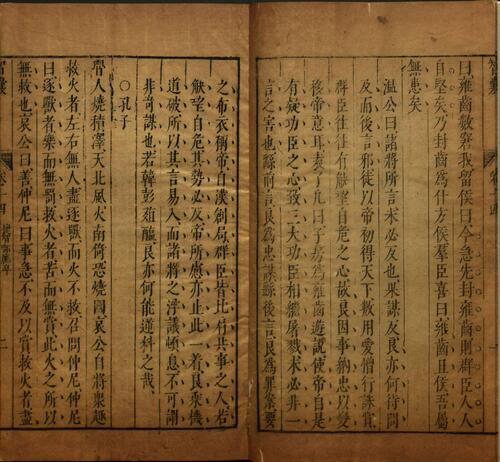 曰雍齒數窘我留侯曰今急先封雍齒則群臣人人
自堅矣乃封齒為什方侯羣臣喜曰雍齒且侯吾屬
無患矣
溫公曰諸將所言未必反也果謀反良亦何待問
及而後言邪徒以帝初得天下數用愛憎行誅賞
羣臣往往有觖望自危之心故良因事納忠以變
移帝意耳袁了凡曰子房為雍齒遊說使帝自是
有疑功臣之心致三大功臣相繼屠戮未必非一
言之害也繇前言良為忠謀繇後言良為罪案要
之布衣稱帝自漢創局群臣皆比肩共事之人若
觖望自危其勢必反帝所慮亦止此一着良乘機
道破所以其言易入而諸將之浮議頓息不可謂
非奇謀也若韓彭菹醢良亦何能逆料之哉
○孔子
魯人燒積澤天北風火南倚恐燒國哀公自將眾趣
救火者左右無人盡逐獸而火不救召問仲尼仲尼
曰逐獸者樂而無罰救火者苦而無賞此火之所以
無救也哀公曰善仲尼曰事急不及以賞救火者盡
智囊
卷之四
二